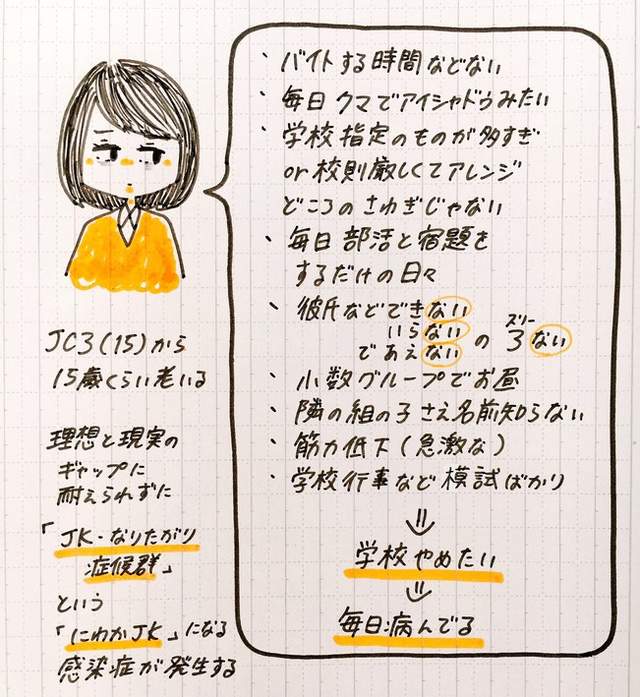 ・バイトする時間などない
・毎日クマでアイシャドウみたい
・学校指定のものが多すぎ
or校則厳しくてアレンジ
どころのさわぎじゃない
・毎日部活と宿題を
するだけの日々
・彼氏などできない
いらない
であえない
の3ない
スリー
・小数グループでお昼
・隣の組の子さえ名前知らない
・筋力低下(急激な)
・学校行事など模試ばかり
⇓
学校やめたい
⇓
毎日病んでる
JC3(15)から
15歳くらい老いる
理想と現実の
ギャップに
耐えられずに
「JK・なりたがり
症候群」
という
「にわかJK」になる
感染症が発生する